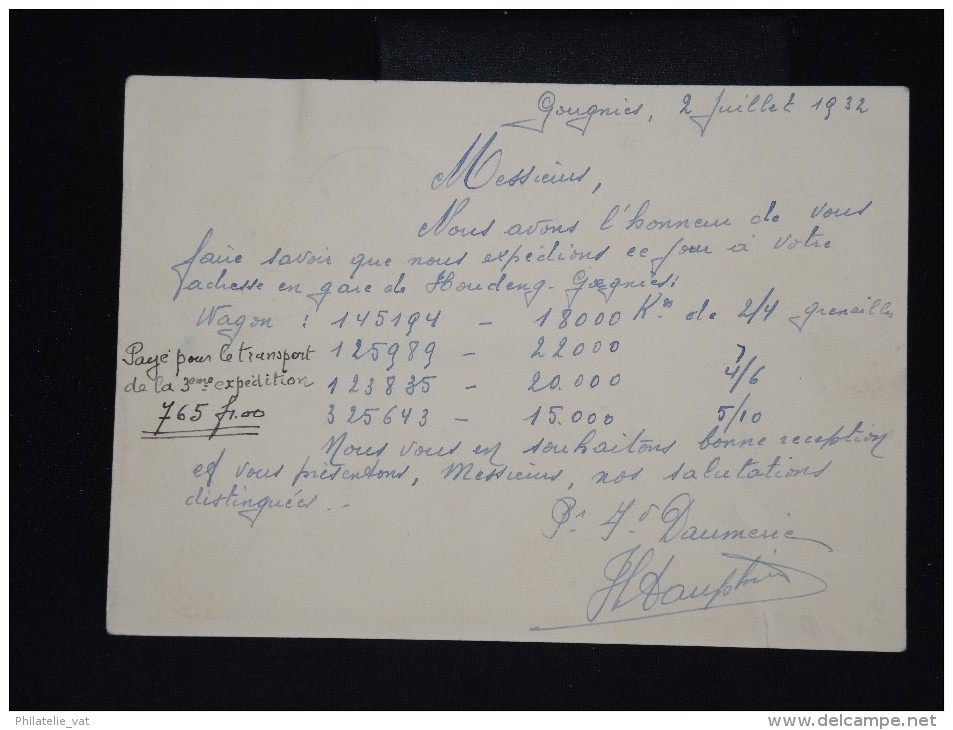 Gougnies, 2 Juillet 1932
Messieurs,
Nous avons l'honneur de vous
faire savoir que nous expédions ce jour à votre
adresse en gare de Houdeng-Gœgnies:
Wagon : 145194 - 18000 Kos de 2/4 grenailles
125989 - 22000 "
123835 - 20.000 4/6
325643 - 15.000 5/10
Payé pour le transport
de la 3eme expédition
765 fr.00
Nous vous en souhaitons bonne reception
et vous présentons, Messieurs, nos salutations
distinguées. -
Pr Fd Daumerie
HDauphin
Philatelie_vat
www.delcampe.net